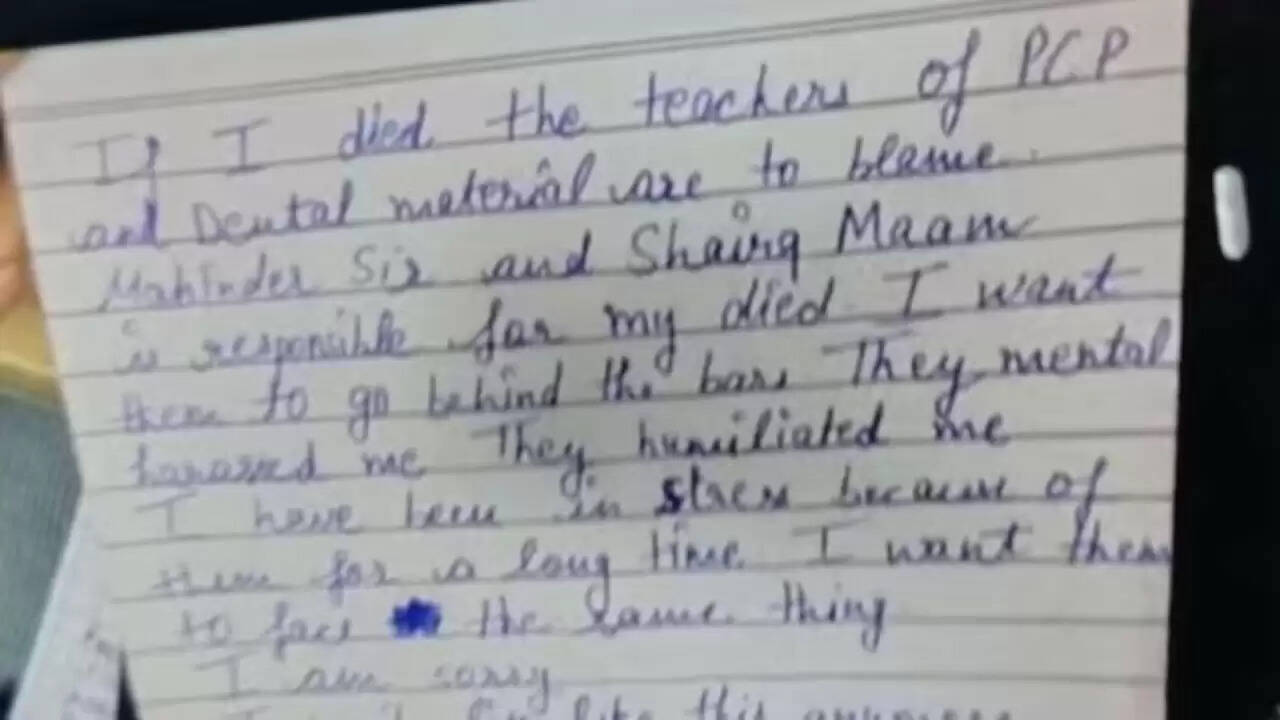 If I died the teachers of PCP
and Dental material are to blame.
Mahinder Sir and Shairg Maam
is responsible for my died. I want
them to go behind the bars They mental
harassed me They humiliated me
I have been in stress because of
them for a long time I want them
to face the same thing
I am sorry
like this anymore